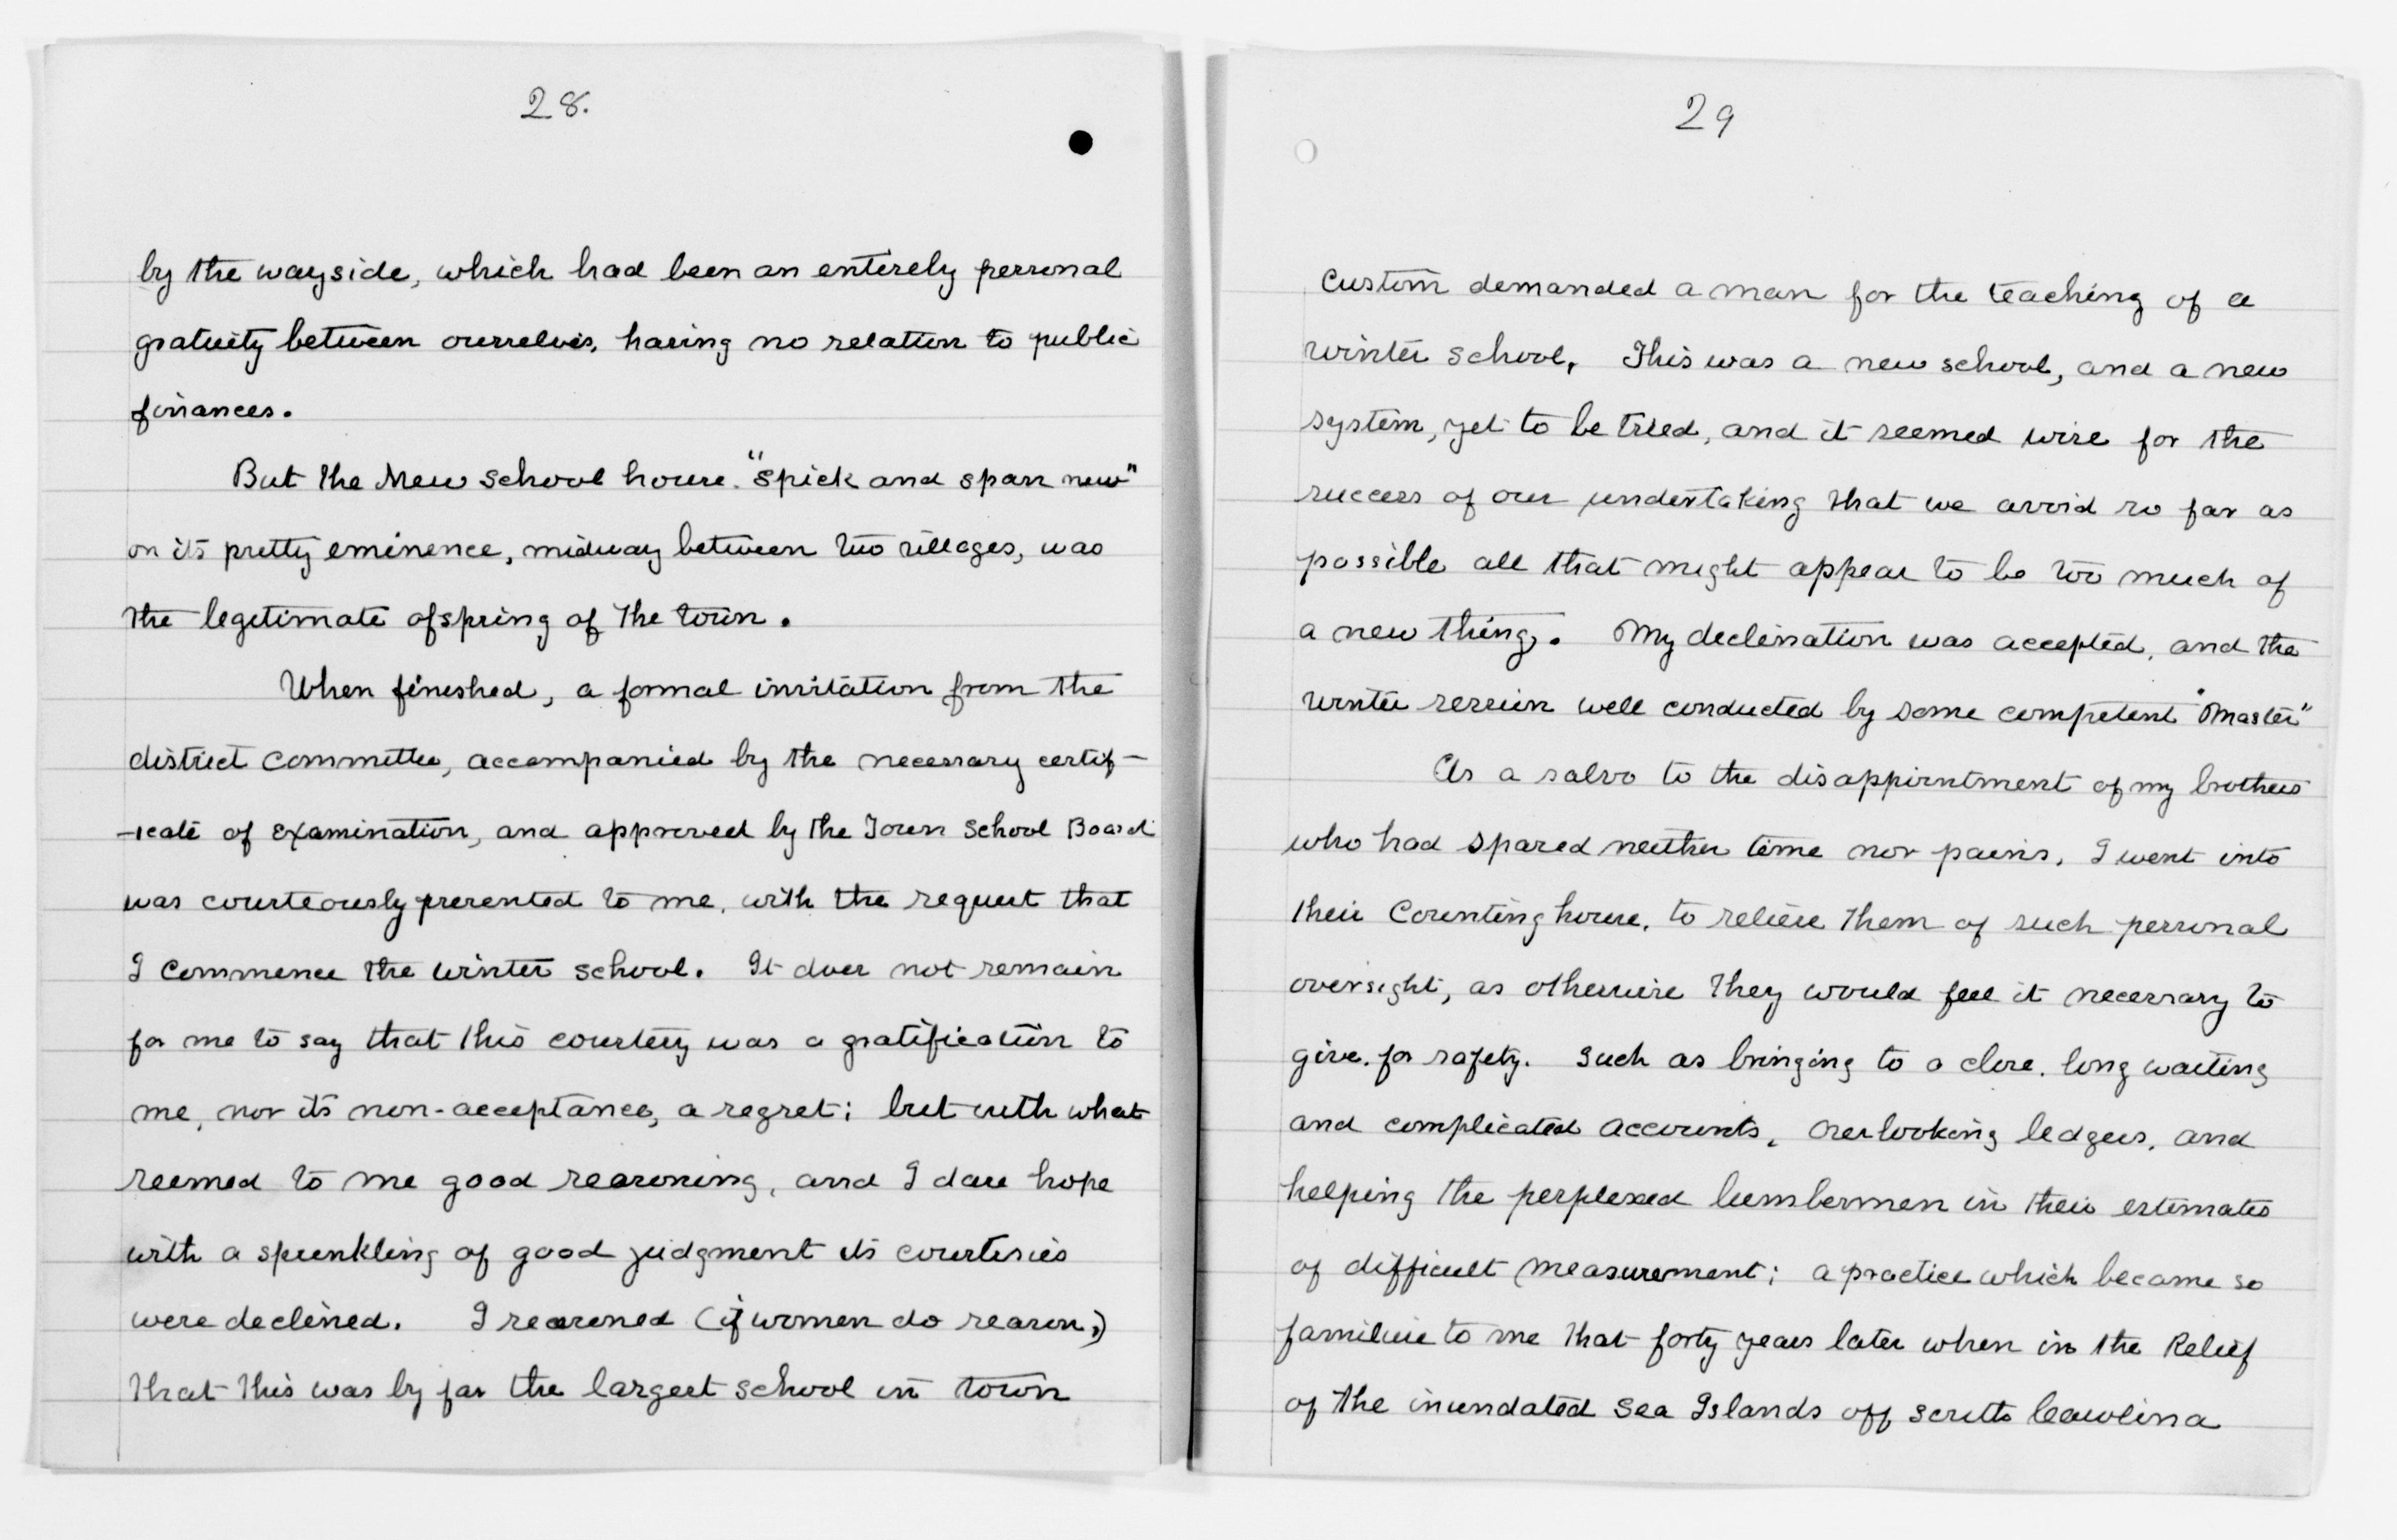 28.
by the wayside, which had been an entirely personal
gratuity between ourselves, having no relation to public
finances.
But the New school house. "spick and span new"
on its pretty eminence, midway between two villages, was
the legitimate ofspring of the town.
When finished, a formal invitation from the
district committee, accompanied by the necessary certif-
-icate of examination, and approved by the Town School Board
was courteously presented to me, with the request that
I commence the winter school. It does not remain
for me to say that this courtesy was a gratification to
me, nor its non-acceptance, a regret; but with what
seemed to me good reasoning, and I dare hope
with a sprinkling of good judgment its courtesies
were declined. I reasoned (if women do reason,)
that this was by far the largest school in town
29
Custom demanded a man for the teaching of a
winter school. This was a new school, and a new
system, yet to be tried, and it seemed wise for the
success of our undertaking that we avoid so far as
possible all that might appear to be too much of
a new thing. My declination was accepted, and the
winter session well conducted by some competent "Master"
As a salvo to the disappointment of my brothers
who had spared neither time nor pains, I went into
their Counting house, to relieve them of such personal
oversight, as otherwise they would feel it necessary to
give, for safety. Such as bringing to a close, long waiting
and complicated accounts, overlooking ledgers, and
helping the perplexed lumbermen in their estimates
of difficult measurement; a practice which became so
familiar to me that forty years later when in the Relief
of the inundated Sea Islands off South Carolina